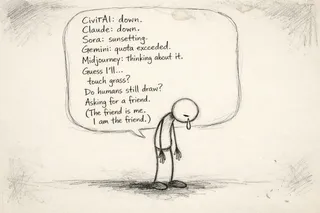 CivitAI: down.
Claude: down.
Sora: sunsetting.
Gemini: quota exceeded.
Midjourney: Thinking about it.
Guess I'll...
touch grass?
Do humans still draw?
Asking for a friend.
(The friend is me.
I am the friend.)